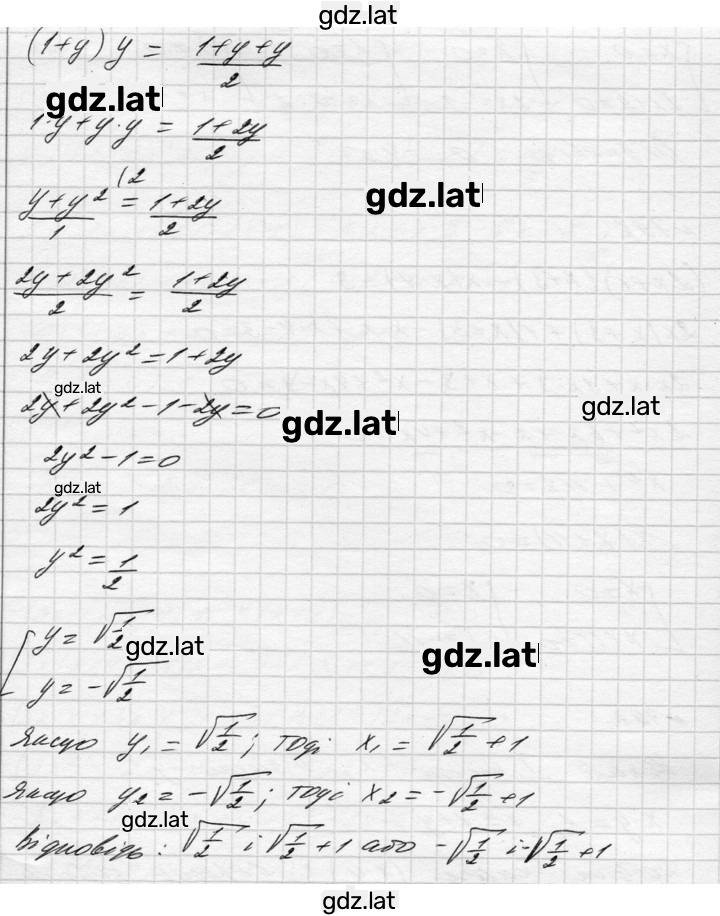 gdz.lat
(1+y) y = (1+y+y)/2
gdz.lat
1·y+y·y = (1+2y)/2
(2
gdz.lat
(y+y²)/1 = (1+2y)/2
(2y+2y²)/2 = (1+2y)/2
2y+2y²=1+2y
gdz.lat
2y+2y²-1-2y=0
gdz.lat
gdz.lat
2y²-1=0
gdz.lat
2y²=1
y²=1/2
y=√(1/2)
gdz.lat
gdz.lat
y=-√(1/2)
якщо y₁=√(1/2); тоді x₁=√(1/2)+1
якщо y₂=-√(1/2); тоді x₂=-√(1/2)+1
gdz.lat
Відповідь: √(1/2) і √(1/2)+1 або -√(1/2) і -√(1/2)+1
gdz.lat